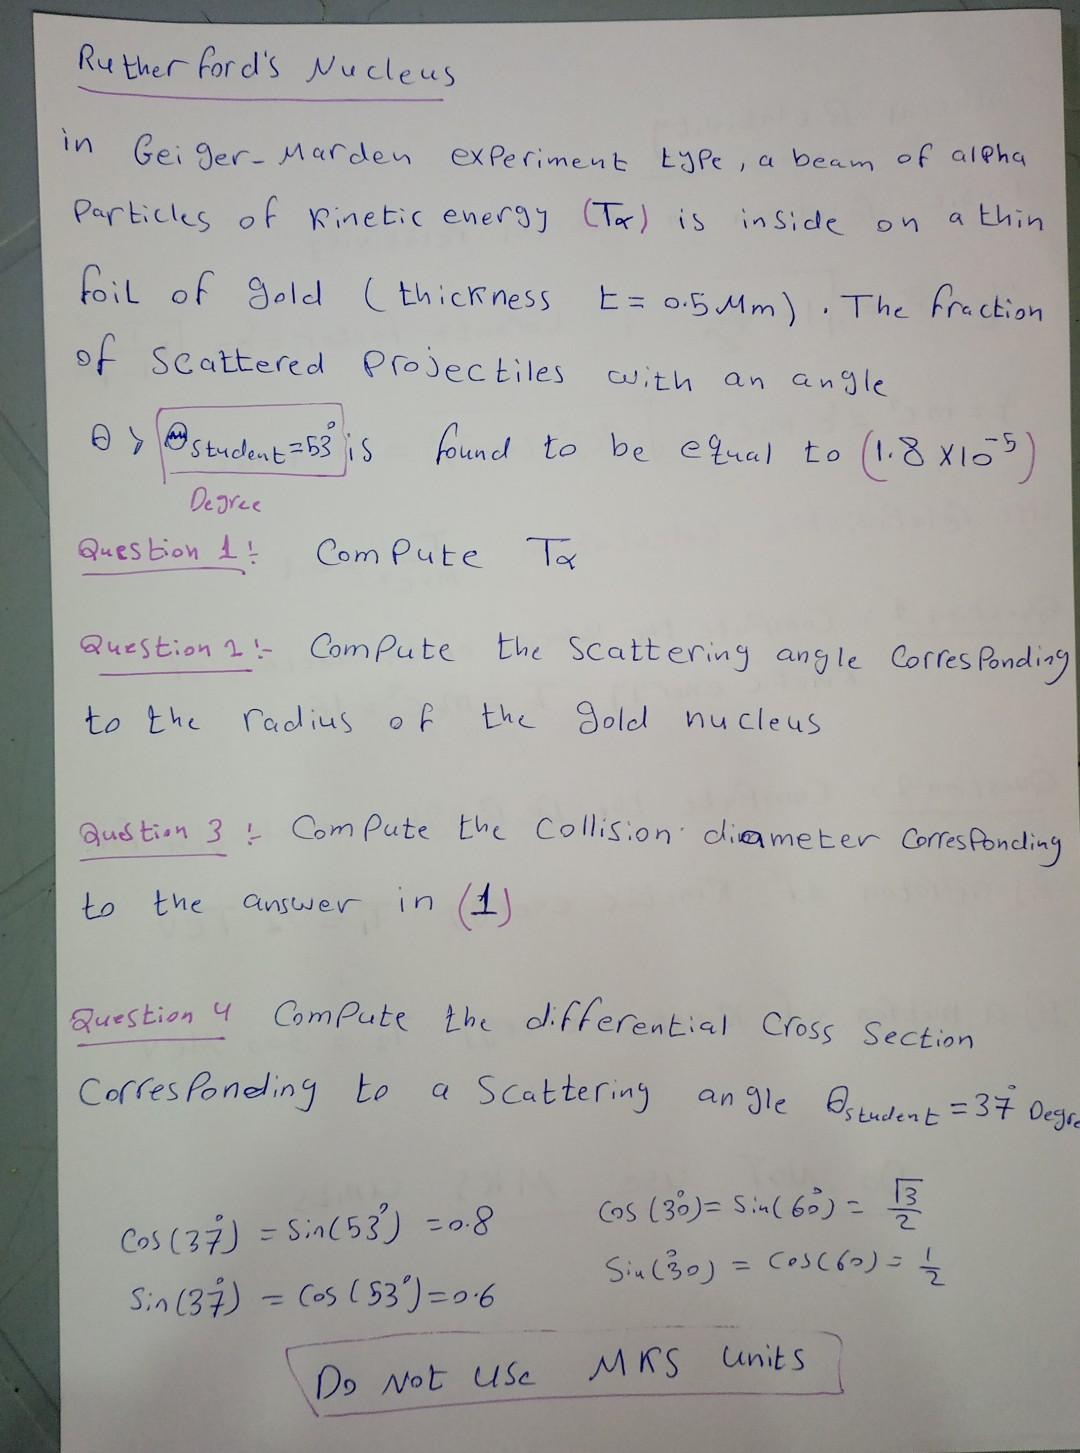 Rutherford's Nucleus
in Geiger-Marden experiment type, a beam of alpha
Particles of Kinetic energy (Tα) is inside on a thin
foil of gold (thickness t = 0.5 Mm). The fraction
of scattered Projectiles with an angle
θ > θstudent=53° is found to be equal to (1.8 x10⁻⁵)
Degree
Question 1:- Compute Tα
Question 2:- Compute the scattering angle Corresponding
to the radius of the gold nucleus
Question 3:- Compute the Collision diameter Corresponding
to the answer in (1)
Question 4 Compute the differential Cross Section
Corresponding to a Scattering angle θstudent = 37° Degre
Cos(37°) = Sin(53°) = 0.8
Sin(37°) = Cos(53°) = 0.6
Cos(30°) = Sin(60°) = √3/2
Sin(30°) = Cos(60) = 1/2
Do Not Use MKS Units